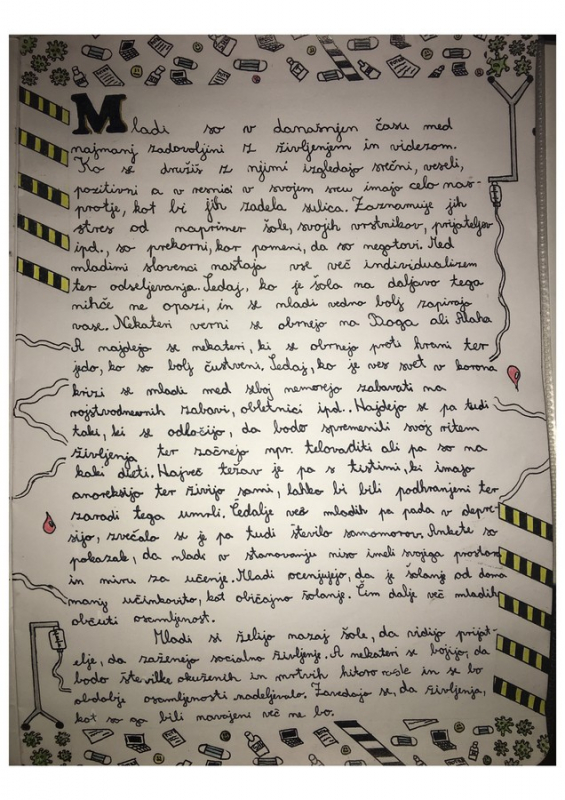 Mladi so v današnjen času med
najmanj zadovoljini z življenjem in videzom.
Ko se družiš z njimi izgledajo srečni, veseli,
pozitivni a v resnici v svojem srcu imajo celo nas-
protje, kot bi jih zadela sulica. Zaznamuje jih
stres od naprimer šole, svojih vrstnikov, prijateljev
ipd., so prekorni, kar pomeni, da so negotovi. Med
mladimi slovenci nastaja vse več individualizem
ter odseljevanja. Sedaj, ko je šola na daljavo tega
nihče ne opazi, in se mladi vedno bolj zapirajo
vase. Nekateri verni se obrnejo na Boga ali Alaha
A najdejo se nekateri, ki se obrnejo proti hrani ter
jedo, ko so bolj čustveni. Sedaj, ko je ves svet v korona
krizi se mladi med seboj nemorejo zabavati na
rojstvodnevnih zabavi, obletnici ipd.. Najdejo se pa tudi
taki, ki se odločijo, da bodo spremenili svoj ritem
življenja ter začnejo npr. telovaditi ali pa so na
kaki dieti. Največ težav je pa s tistimi, ki imajo
anoreksijo ter živijo sami, lahko bi bili podhranjeni ter
zaradi tega umrli. Čedalje več mladih pa pada v depre-
sijo, zvečalo se je pa tudi število samomorov. Ankete so
pokazale, da mladi v stanovanju niso imeli svojiga prostora
in miru za učenje. Mladi ocenjujejo, da je šolanje od doma
manj učinkovito, kot običajno šolanje. Čim dalje več mladih
občuti osamljenost.
Mladi si želijo nazaj šole, da vidijo prijat-
elje, da zaženejo socialno življenje. A nekateri se bojijo, da
bodo številke okuženih in mrtvih hitoro rasle in se bo
obdobje osamljenosti nadeljevalo. Zavedajo se, da življenja,
kot so ga bili navajeni več ne bo.